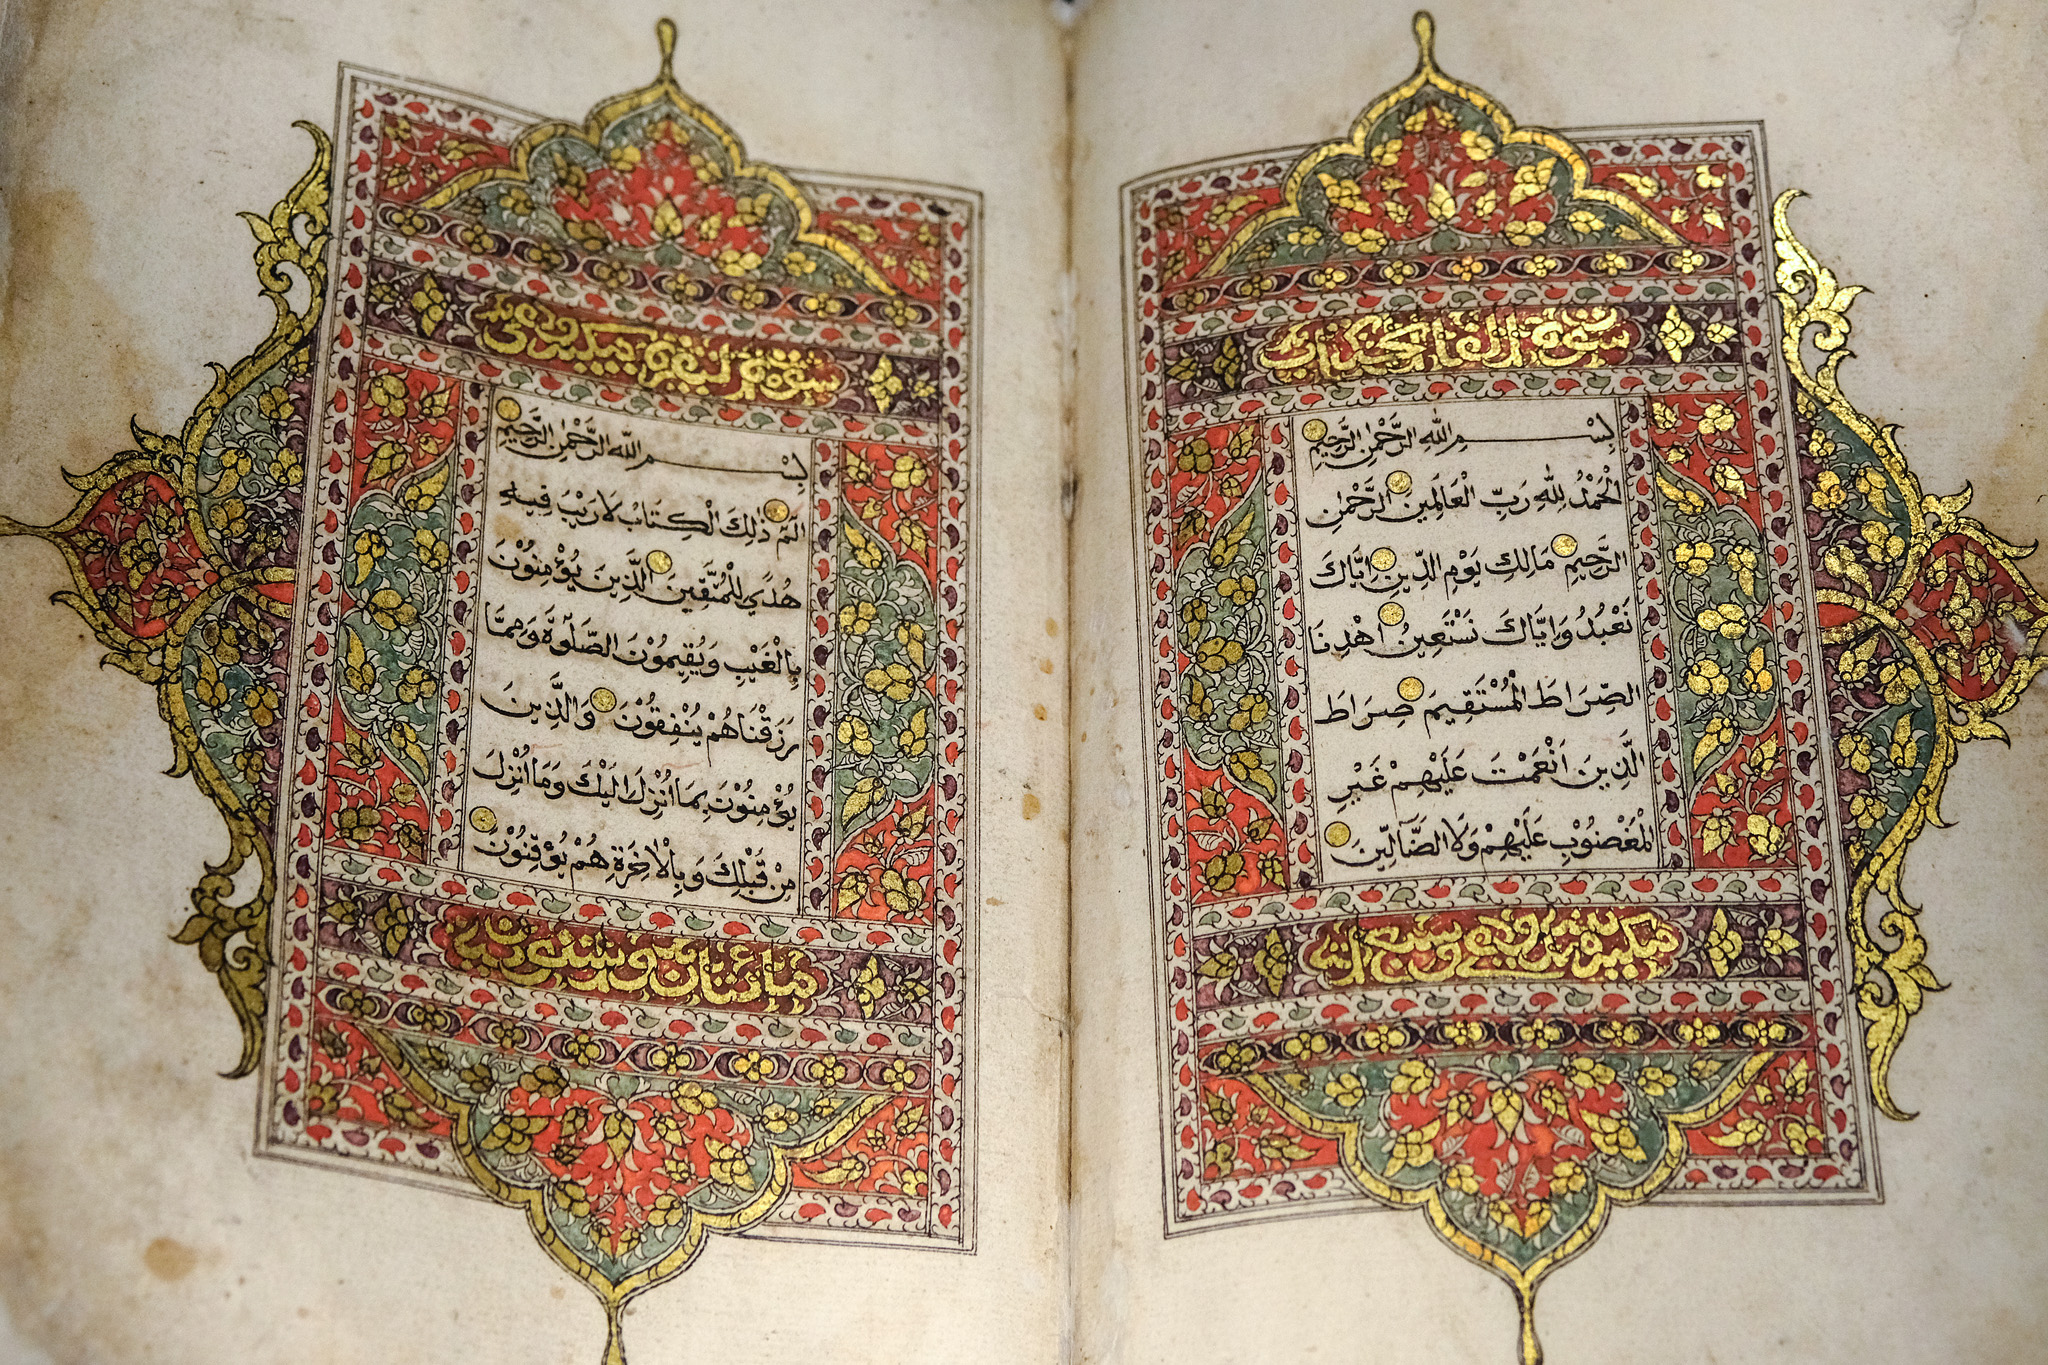 سورة الفاتحة الكتاب
بِسْمِ اللّٰهِ الرَّحْمٰنِ الرَّحِيْمِ
اَلْحَمْدُ لِلّٰهِ رَبِّ الْعَالَمِيْنَ الرَّحْمٰنِ
الرَّحِيْمِ مَالِكِ يَوْمِ الدِّيْنِ اِيَّاكَ
نَعْبُدُ وَاِيَّاكَ نَسْتَعِيْنُ اِهْدِنَا
الصِّرَاطَ الْمُسْتَقِيْمَ صِرَاطَ
الَّذِيْنَ اَنْعَمْتَ عَلَيْهِمْ غَيْرِ
الْمَغْضُوْبِ عَلَيْهِمْ وَلَا الضَّآلِّيْنَ
وهي سبع
سورة البقرة
بِسْمِ اللّٰهِ الرَّحْمٰنِ الرَّحِيْمِ
الٓمّٓ ذٰلِكَ الْكِتَابُ لَا رَيْبَ فِيْهِ
هُدًي لِلْمُتَّقِيْنَ الَّذِيْنَ يُؤْمِنُوْنَ
بِالْغَيْبِ وَيُقِيْمُوْنَ الصَّلٰوةَ وَمِمَّا
رَزَقْنَاهُمْ يُنْفِقُوْنَ وَالَّذِيْنَ
يُؤْمِنُوْنَ بِمَا اُنْزِلَ اِلَيْكَ وَمَا اُنْزِلَ
مِنْ قَبْلِكَ وَبِالْاٰخِرَةِ هُمْ يُوْقِنُوْنَ